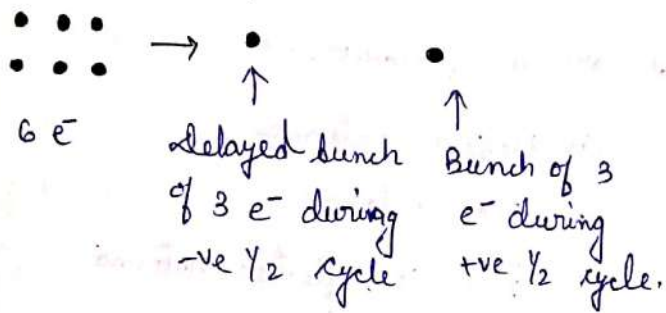 6 e⁻
Delayed bunch
of 3 e⁻ during
-ve 1/2 cycle
Bunch of 3
e⁻ during
+ve 1/2 cycle.